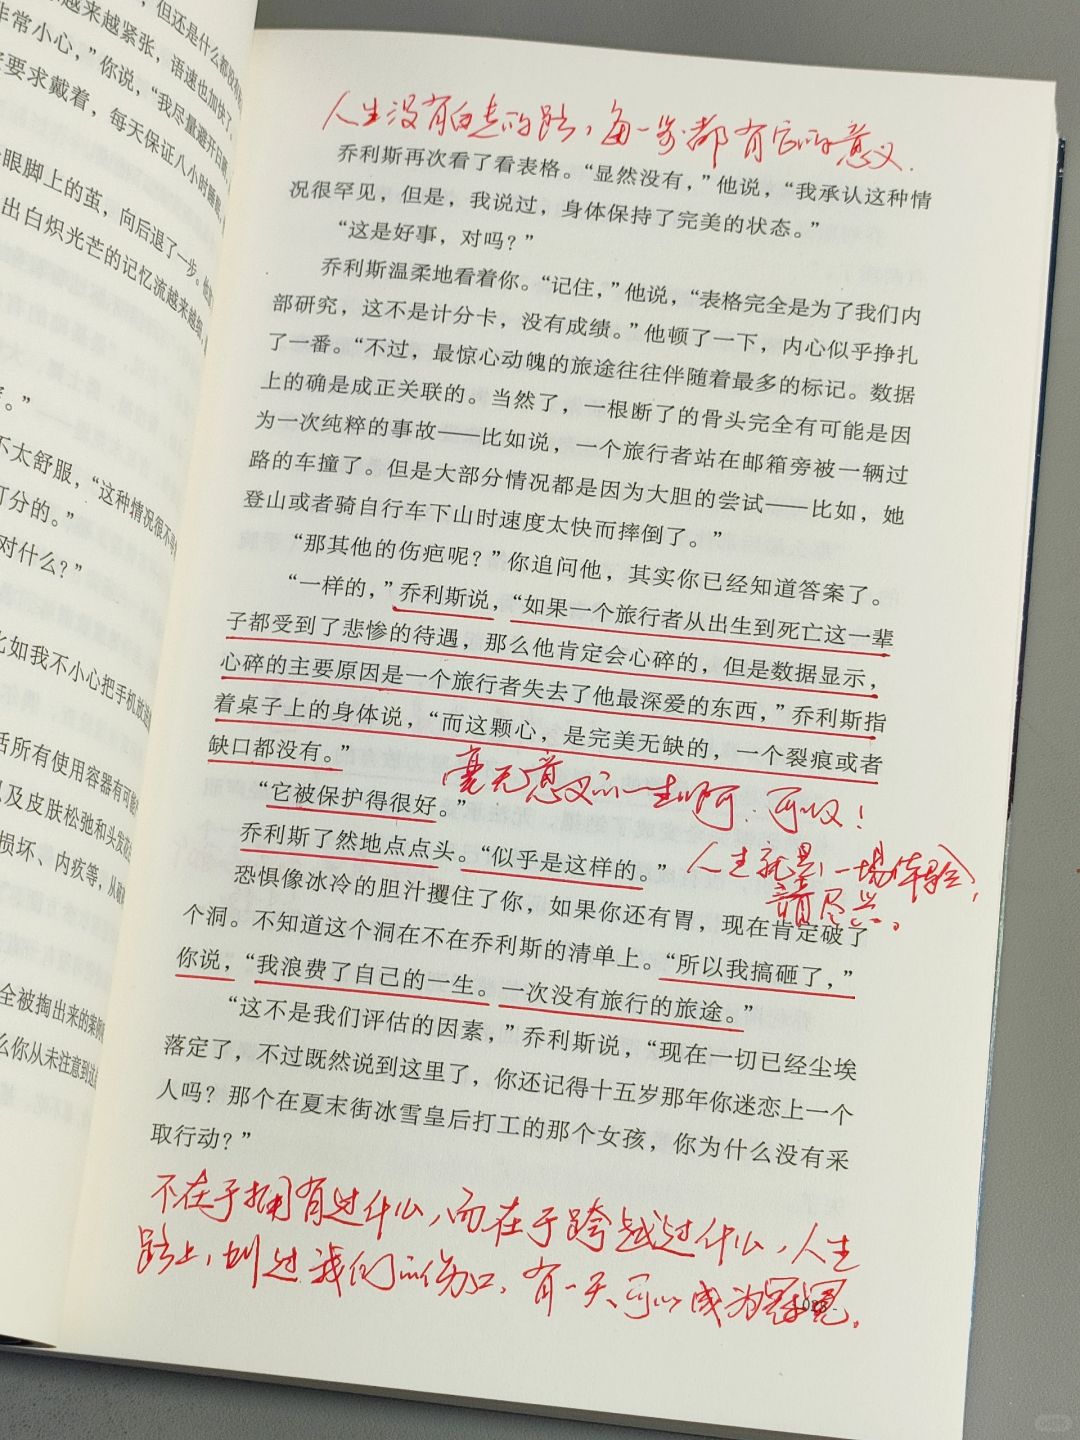 ，但还是什么都没有
越来越紧张，语速也加快了。
非常小心，”你说，“我尽量避开日晒，
要求戴着，每天保证八小时睡眠，
眼脚上的茧，向后退了一步。
出白炽光芒的记忆流越来越
。”
不太舒服，“这种情况很不
打分的。”
对什么？”
比如我不小心把手机放
活所有使用容器有可能
以及皮肤松弛和头发
损坏、内疚等，从
全被掏出来的案例
么你从未注意到这
人生没有白走的路，每一步都有它的意义.
乔利斯再次看了看表格。“显然没有，”他说，“我承认这种情
况很罕见，但是，我说过，身体保持了完美的状态。”
“这是好事，对吗？”
乔利斯温柔地看着你。“记住，”他说，“表格完全是为了我们内
部研究，这不是计分卡，没有成绩。”他顿了一下，内心似乎挣扎
了一番。“不过，最惊心动魄的旅途往往伴随着最多的标记。数据
上的确是成正关联的。当然了，一根断了的骨头完全有可能是因
为一次纯粹的事故——比如说，一个旅行者站在邮箱旁被一辆过
路的车撞了。但是大部分情况都是因为大胆的尝试——比如，她
登山或者骑自行车下山时速度太快而摔倒了。”
“那其他的伤疤呢？”你追问他，其实你已经知道答案了。
“一样的，”乔利斯说，“如果一个旅行者从出生到死亡这一辈
子都受到了悲惨的待遇，那么他肯定会心碎的，但是数据显示，
心碎的主要原因是一个旅行者失去了他最深爱的东西，”乔利斯指
着桌子上的身体说，“而这颗心，是完美无缺的，一个裂痕或者
缺口都没有。”
毫无意义的一生啊，可以！
“它被保护得很好。”
乔利斯了然地点点头。“似乎是这样的。”
人生就是一场体验，
请尽兴。
恐惧像冰冷的胆汁攫住了你，如果你还有胃，现在肯定破了
个洞。不知道这个洞在不在乔利斯的清单上。“所以我搞砸了，”
你说，“我浪费了自己的一生。一次没有旅行的旅途。”
“这不是我们评估的因素，”乔利斯说，“现在一切已经尘埃
落定了，不过既然说到这里了，你还记得十五岁那年你迷恋上一个
人吗？那个在夏末街冰雪皇后打工的那个女孩，你为什么没有采
取行动？”
不在于拥有过什么，而在于跨越过什么，人生
路上，划过我们的伤口，有一天可以成为冠冕。